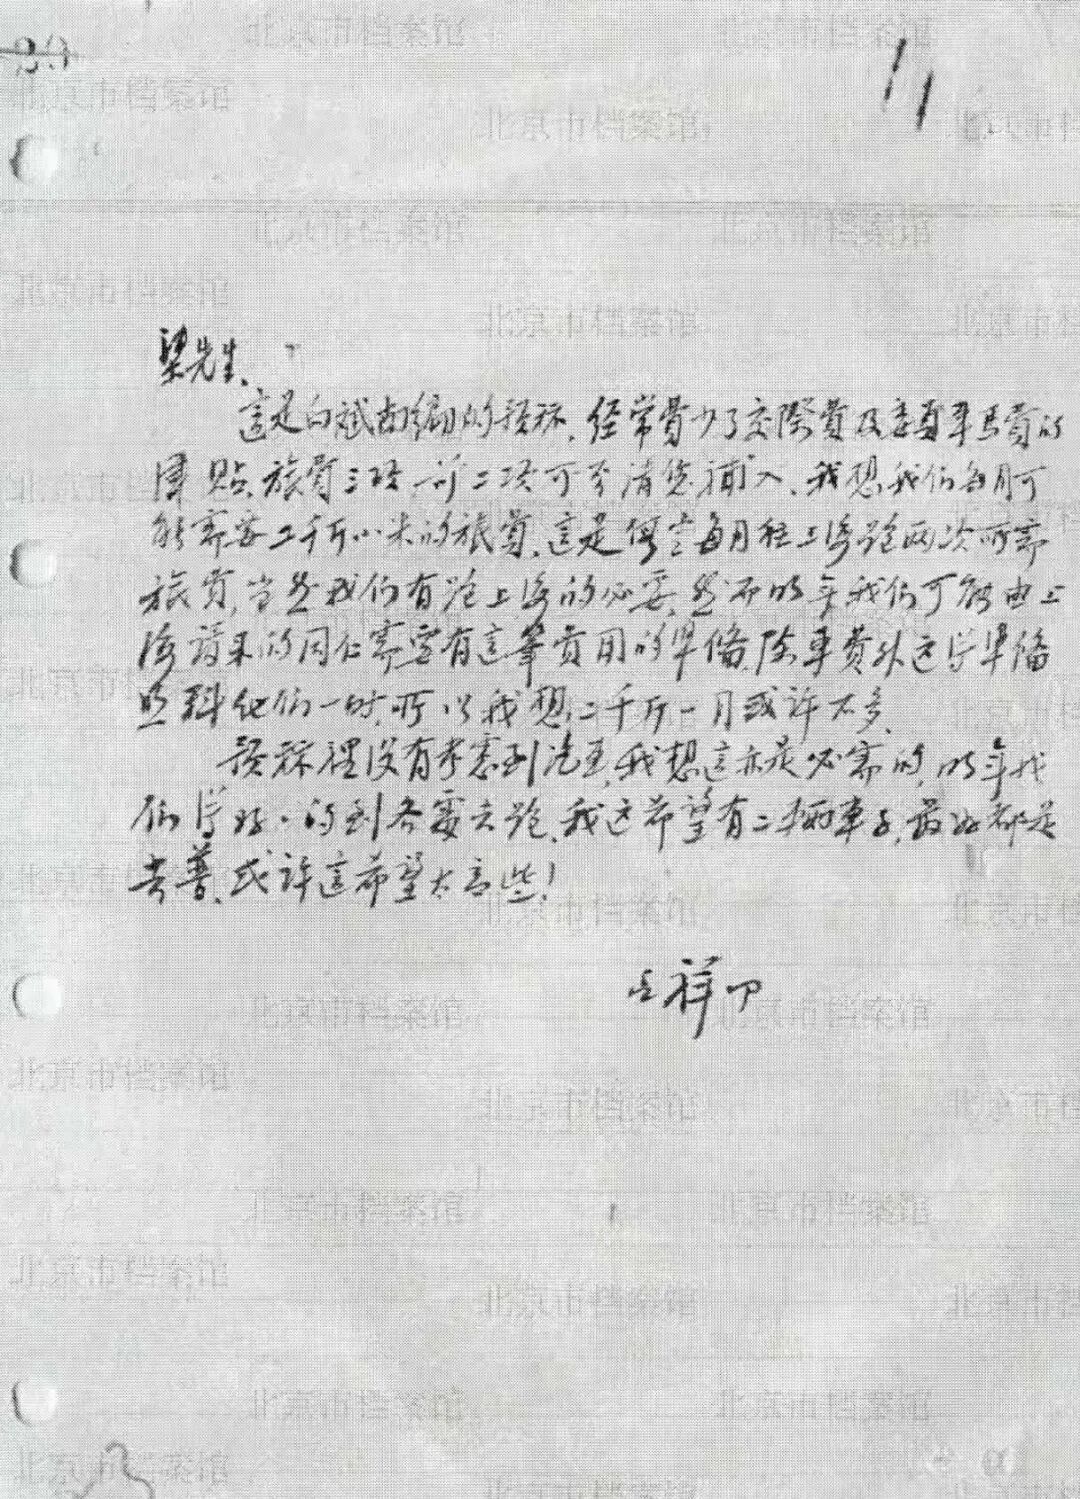 11
梁先生、
這是白斌甫編的预祘、经常費少了交際費及委員車馬費的
津貼、旅費三项、前二项可否請您補入、我想我们每月可
能需要二千斤小米的旅費、這是假定每月往上海跑两次所需
旅費、当然我们有跑上海的必要、然而明年我们可能由上
海請来的同仁需要有這筆費用的準備、除車費外这得準備
照料他们一时、所以我想二千斤一月或许不多、
预祘裡没有考慮到汽車、我想這亦是必需的、明年我
们得好的到各處去跑、我这希望有二辆車子、最好都是
吉普、或许這希望太高些！
祥
北京市档案馆